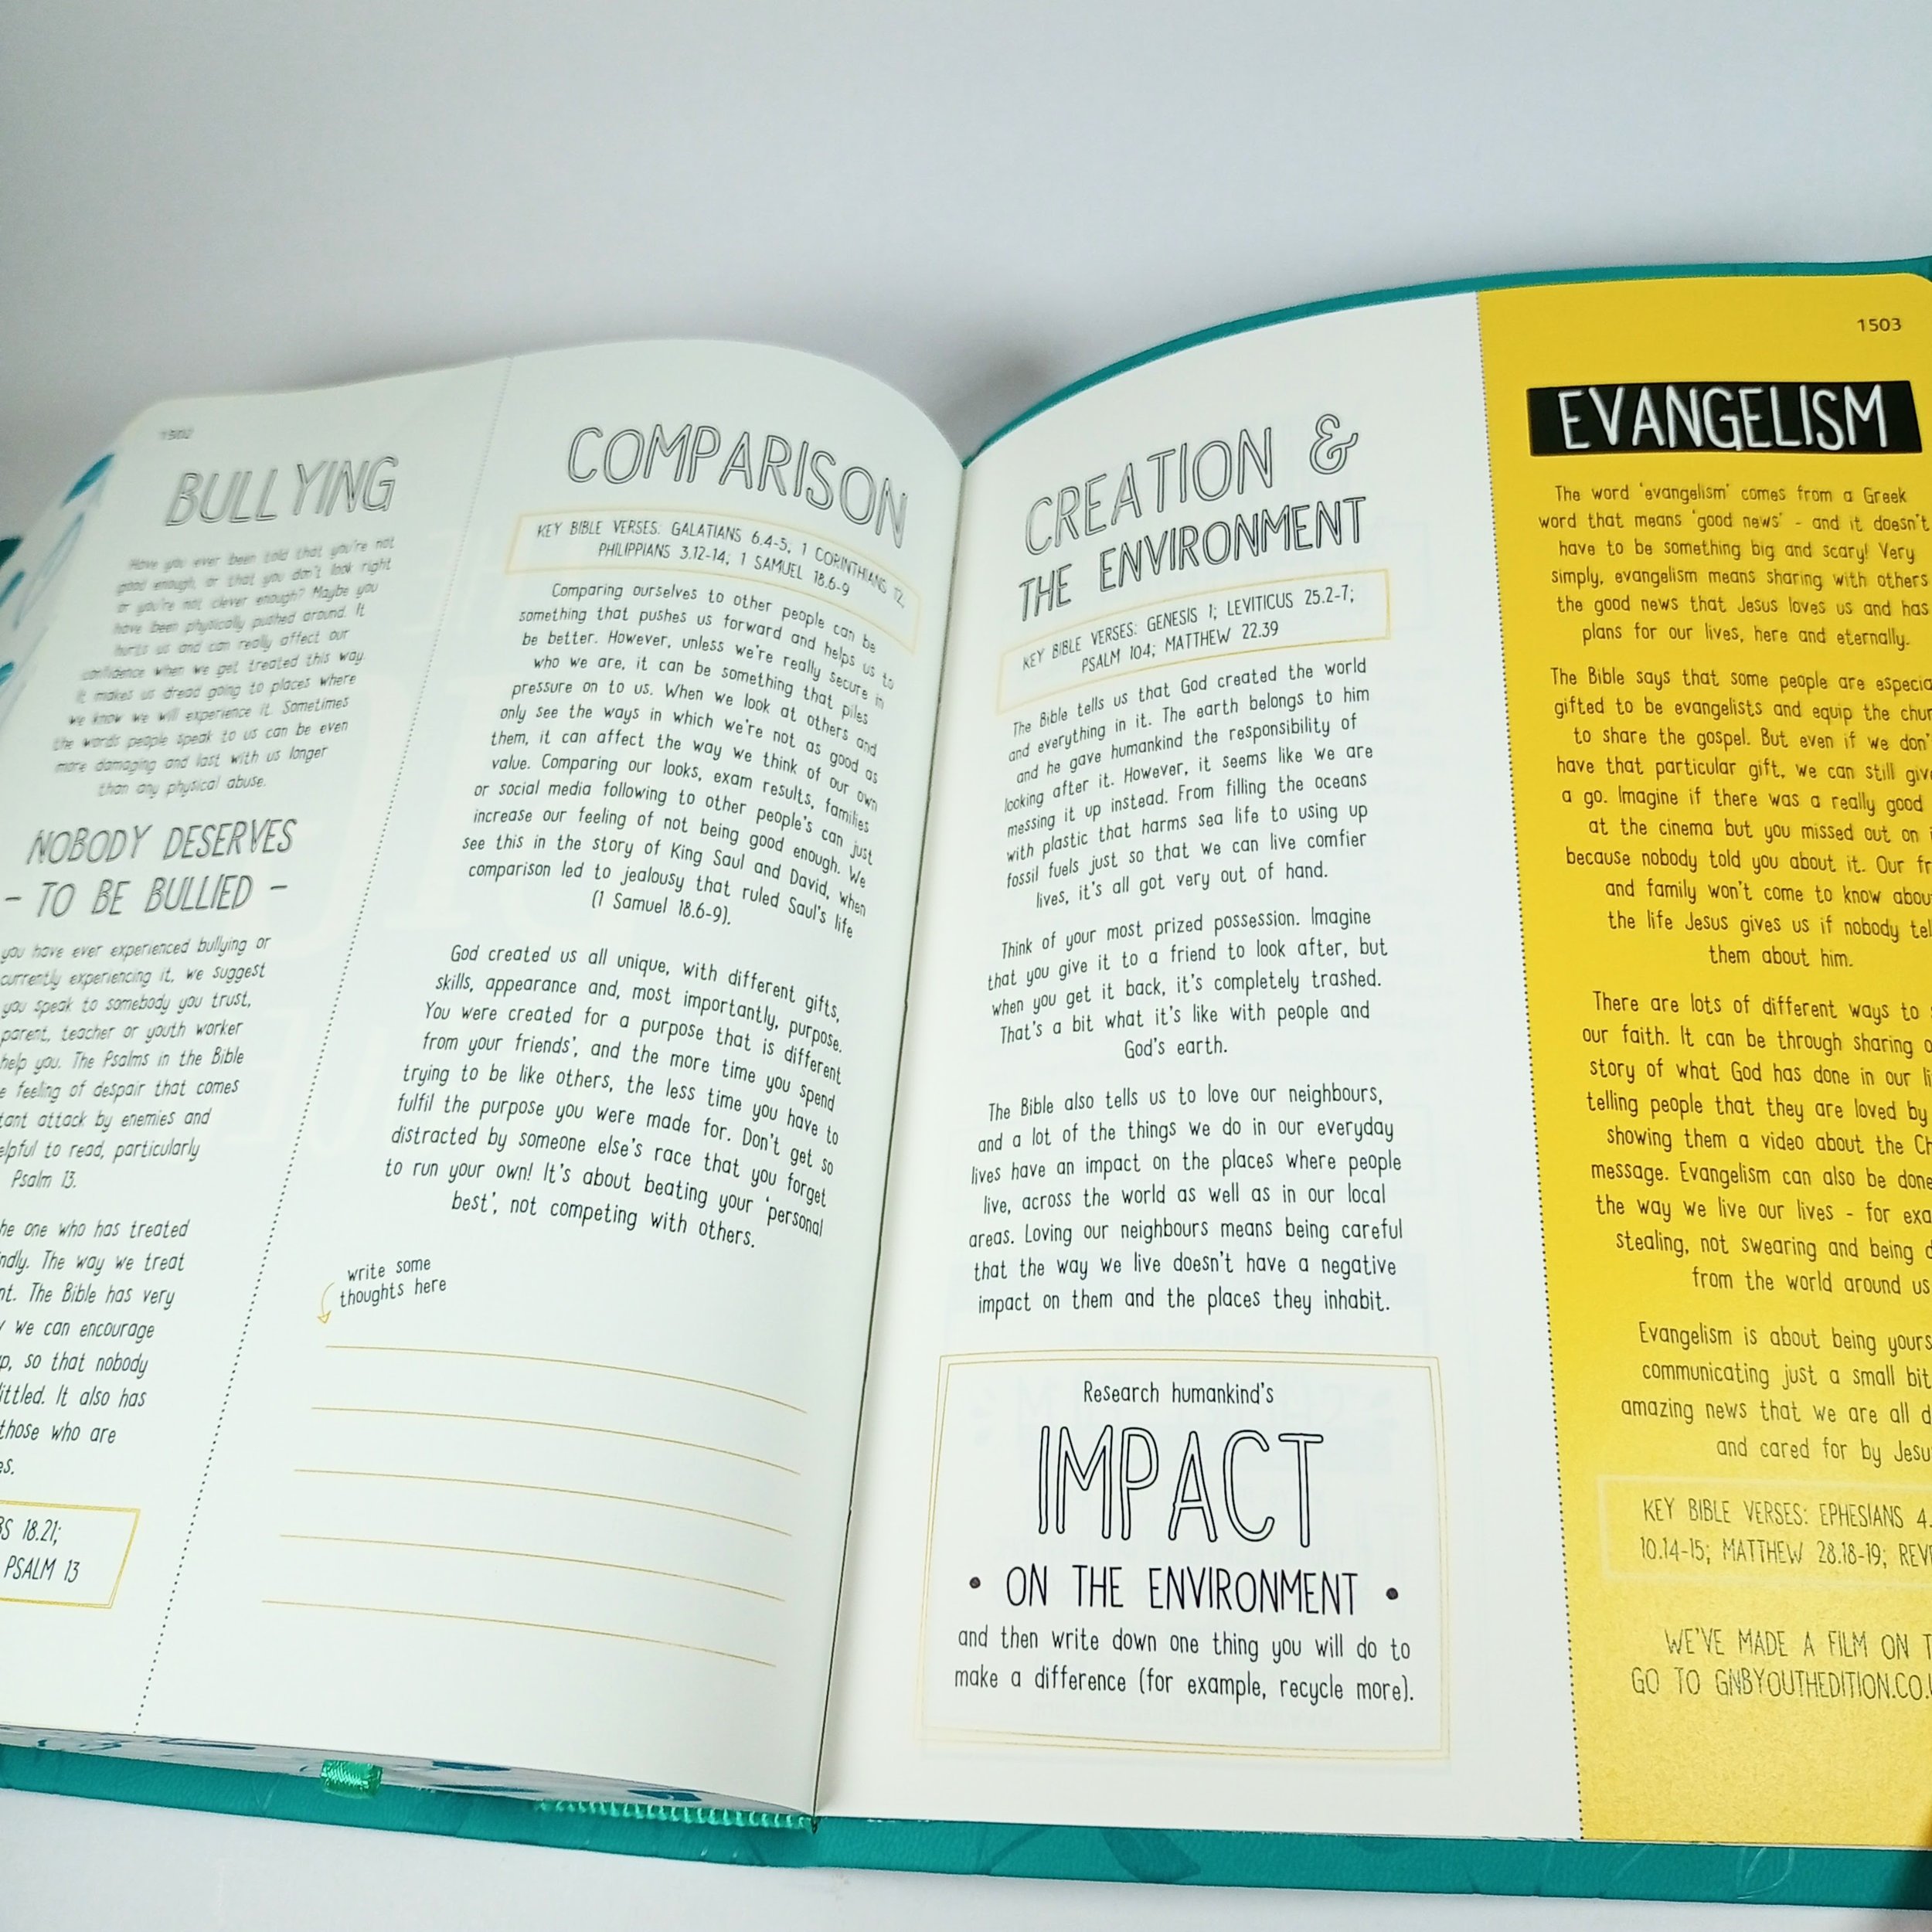 1502
BULLYING
Have you ever been told that you're not
good enough, or that you don't look right
or you're not clever enough? Maybe you
have been physically pushed around. It
hurts us and can really affect our
confidence when we get treated this way.
It makes us dread going to places where
we know we will experience it. Sometimes
the words people speak to us can be even
more damaging and last with us longer
than any physical abuse.
NOBODY DESERVES
- TO BE BULLIED -
you have ever experienced bullying or
currently experiencing it, we suggest
you speak to somebody you trust,
parent, teacher or youth worker
help you. The Psalms in the Bible
feeling of despair that comes
attack by enemies and
to read, particularly
Psalm 13.
one who has treated
The way we treat
The Bible has very
we can encourage
so that nobody
It also has
those who are
18.21;
PSALM 13
COMPARISON
KEY BIBLE VERSES: GALATIANS 6.4-5, 1 CORINTHIANS 12,
PHILIPPIANS 3.12-14; 1 SAMUEL 18.6-9
Comparing ourselves to other people can be
something that pushes us forward and helps us to
be better. However, unless we're really secure in
who we are, it can be something that piles
pressure on to us. When we look at others and
only see the ways in which we're not as good as
them, it can affect the way we think of our own
value. Comparing our looks, exam results, families
or social media following to other people's can just
increase our feeling of not being good enough. We
see this in the story of King Saul and David, when
comparison led to jealousy that ruled Saul's life
(1 Samuel 18.6-9).
God created us all unique, with different gifts,
skills, appearance and, most importantly, purpose.
You were created for a purpose that is different
from your friends', and the more time you spend
trying to be like others, the less time you have to
fulfil the purpose you were made for. Don't get so
distracted by someone else's race that you forget
to run your own! It's about beating your 'personal
best', not competing with others.
write some
thoughts here
CREATION &
THE ENVIRONMENT
KEY BIBLE VERSES: GENESIS 1; LEVITICUS 25.2-7;
PSALM 104; MATTHEW 22.39
The Bible tells us that God created the world
and everything in it. The earth belongs to him
and he gave humankind the responsibility of
looking after it. However, it seems like we are
messing it up instead. From filling the oceans
with plastic that harms sea life to using up
fossil fuels just so that we can live comfier
lives, it's all got very out of hand.
Think of your most prized possession. Imagine
that you give it to a friend to look after, but
when you get it back, it's completely trashed.
That's a bit what it's like with people and
God's earth.
The Bible also tells us to love our neighbours,
and a lot of the things we do in our everyday
lives have an impact on the places where people
live, across the world as well as in our local
areas. Loving our neighbours means being careful
that the way we live doesn't have a negative
impact on them and the places they inhabit.
Research humankind's
IMPACT
• ON THE ENVIRONMENT •
and then write down one thing you will do to
make a difference (for example, recycle more).
1503
EVANGELISM
The word 'evangelism' comes from a Greek
word that means 'good news' - and it doesn't
have to be something big and scary! Very
simply, evangelism means sharing with others
the good news that Jesus loves us and has
plans for our lives, here and eternally.
The Bible says that some people are especia
gifted to be evangelists and equip the chur
to share the gospel. But even if we don'
have that particular gift, we can still giv
a go. Imagine if there was a really good
at the cinema but you missed out on
because nobody told you about it. Our fr
and family won't come to know abou
the life Jesus gives us if nobody tel
them about him.
There are lots of different ways to
our faith. It can be through sharing
story of what God has done in our li
telling people that they are loved by
showing them a video about the Ch
message. Evangelism can also be done
the way we live our lives - for exa
stealing, not swearing and being d
from the world around us
Evangelism is about being yours
communicating just a small bit
amazing news that we are all d
and cared for by Jesu
KEY BIBLE VERSES: EPHESIANS 4.
10.14-15; MATTHEW 28.18-19; REV
WE'VE MADE A FILM ON T
GO TO GNBYOUTHEDITION.CO.